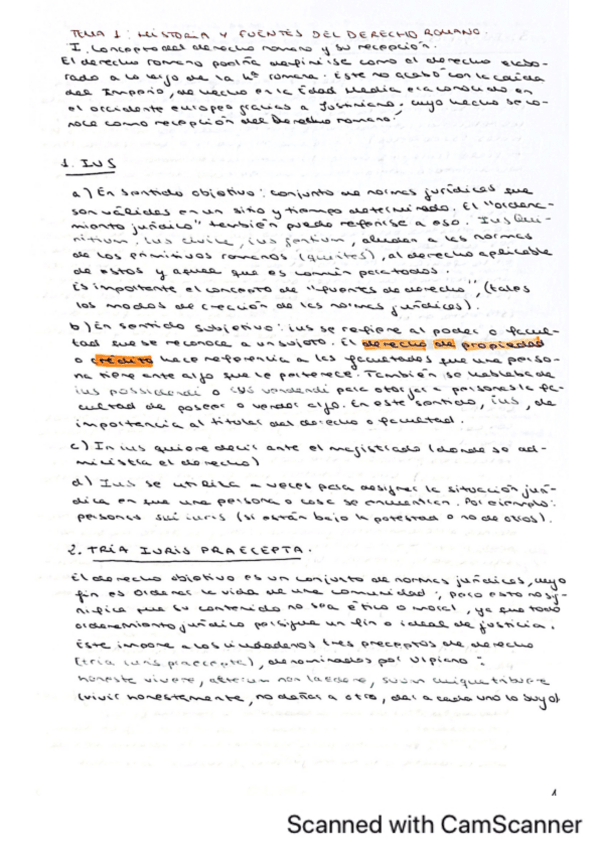 TEMA 1: HISTORIA Y FUENTES DEL DERECHO ROMANO.
I. Concepto del derecho romano y su recepción.
El derecho romano podría definirse como el derecho elabo-
rado a lo largo de la hª romana. Este no acabó con la caída
del Imperio, de hecho en la Edad Media era conocido en
el occidente europeo gracias a Justiniano, cuyo hecho se co-
noce como recepción del Derecho romano.
1. IUS
a) En sentido objetivo: conjunto de normas jurídicas que
son válidas en un sitio y tiempo determinado. El "ordena-
miento jurídico" también puede referirse a eso. Ius Qui-
ritium, ius civile, ius gentium, aluden a las normas
de los primitivos romanos (quirites), al derecho aplicable
de estos y aquel que es común para todos.
Es importante el concepto de "fuentes de derecho", (tales
los modos de creación de las normas jurídicas).
b) En sentido subjetivo: ius se refiere al poder o facul-
tad que se reconoce a un sujeto. El derecho de propiedad
o crédito hace referencia a las facultades que una perso-
na tiene ante algo que le pertenece. También se hablaba de
ius possidendi o ius vendendi para otorgar a personas la fa-
cultad de poseer o vender algo. En este sentido, ius, da
importancia al titular del derecho o facultad.
c) In ius quiere decir ante el magistrado (donde se ad-
ministra el derecho)
d) Ius se utiliza a veces para designar la situación jurí-
dica en que una persona o cosa se encuentran. Por ejemplo:
personas sui iuris (si están bajo la potestad o no de otros).
2. TRIA IURIS PRAECEPTA.
El derecho objetivo es un conjunto de normas jurídicas, cuyo
fin es ordenar la vida de una comunidad; pero esto no sig-
nifica que su contenido no sea ético o moral, ya que todo
ordenamiento jurídico persigue un fin o ideal de justicia.
Este impone a los ciudadanos tres preceptos de derecho
(tria iuris praecepta), denominados por Ulpiano:
honeste vivere, alterum non laedere, suum cuique tribuere
(vivir honestamente, no dañar a otro, dar a cada uno lo suyo)
1
Scanned with CamScanner